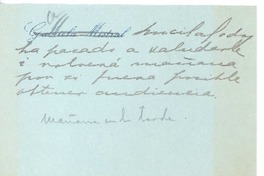 Gabriela Mistral Lucila Godoy
ha pasado a saludarle
i volverá mañana
por si fuera posible
obtener audiencia.
Mañana en la tarde.